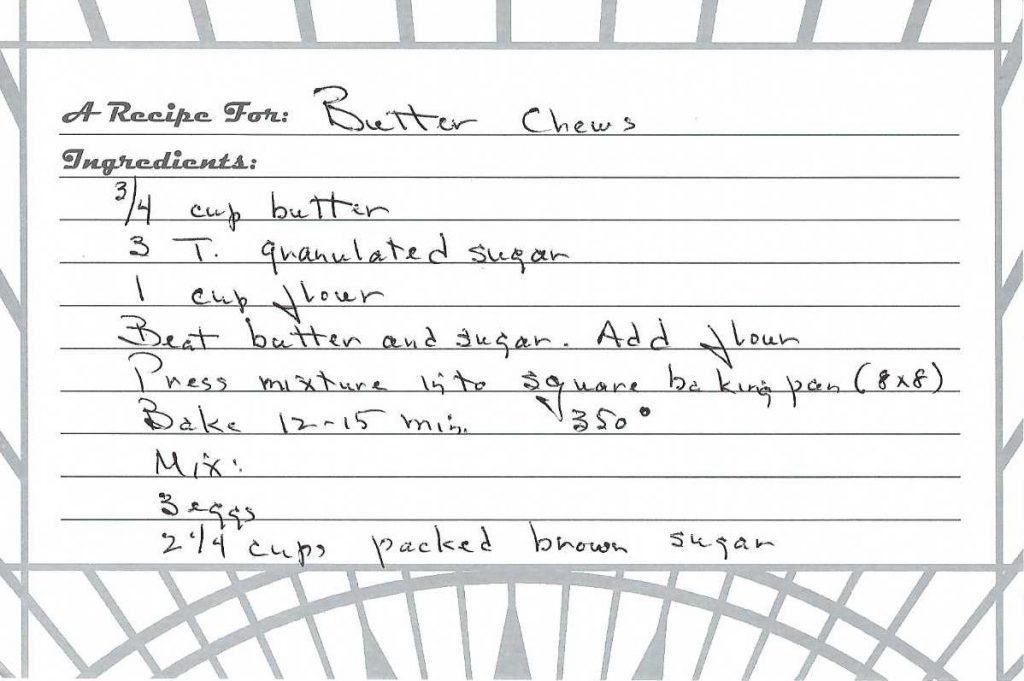 A Recipe For: Butter Chews
Ingredients:
3/4 cup butter
3 T. granulated sugar
1 cup flour
Beat butter and sugar. Add flour
Press mixture into square baking pan (8x8)
Bake 12-15 min. 350°
Mix:
3 eggs
2 1/4 cups packed brown sugar